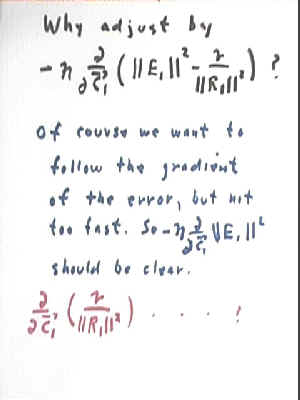 Why adjust by
-η ∂/∂c̄₁ ( ||E₁||² - r/||R₁||² ) ?
Of course we want to
follow the gradient
of the error, but not
too fast. So -η ∂/∂c̄₁ ||E₁||²
should be clear.
∂/∂c̄₁ ( r/||R₁||² ) . . . . !